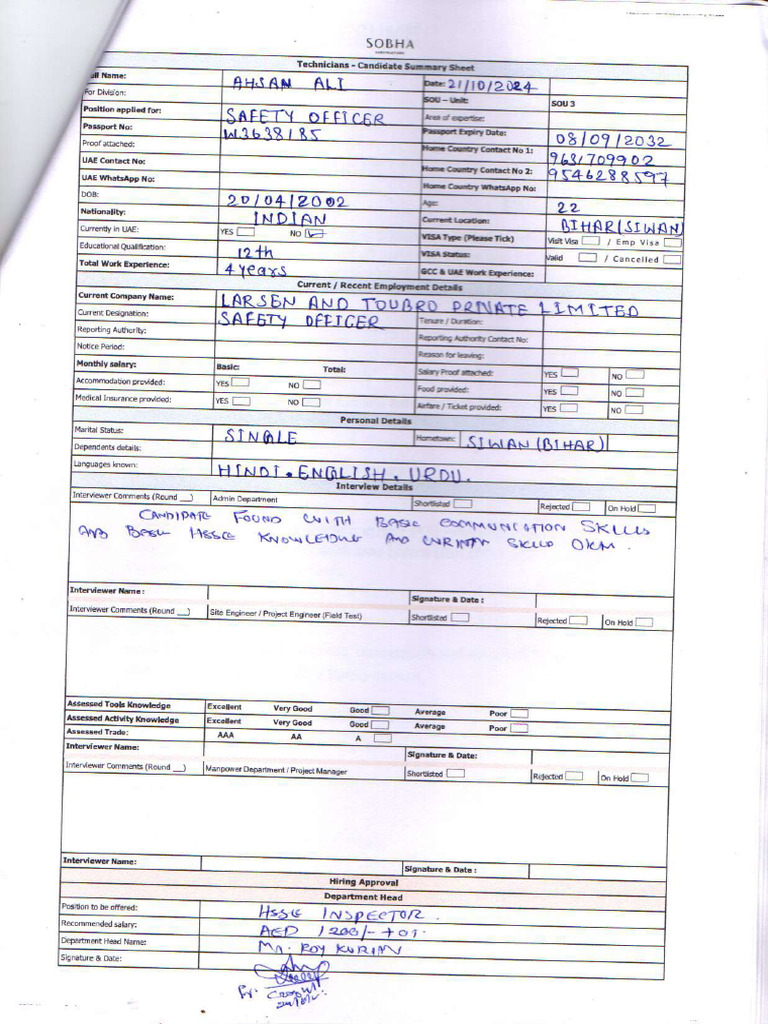 SOBHA
Technicians - Candidate Summary Sheet
ull Name: AHSAN ALI Date: 21/10/2024
For Division: SOU - Unit: SOU 3
Position applied for: SAFETY OFFICER Area of expertise:
Passport No: W3638185 Passport Expiry Date: 08/09/2032
Proof attached: Home Country Contact No 1: 9631709902
UAE Contact No: Home Country Contact No 2: 9546288597
UAE WhatsApp No: Home Country WhatsApp No:
DOB: 20/04/2002 Age: 22
Nationality: INDIAN Current Location: BIHAR(SIWAN)
Currently in UAE: YES NO VISA Type (Please Tick) Visit Visa / Emp Visa
Educational Qualification: 12th VISA Status: Valid / Cancelled
Total Work Experience: 4 years GCC & UAE Work Experience:
Current / Recent Employment Details
Current Company Name: LARSEN AND TOUBRO PRIVATE LIMITED
Current Designation: SAFETY OFFICER Tenure / Duration:
Reporting Authority: Reporting Authority Contact No:
Notice Period: Reason for leaving:
Monthly salary: Basic: Total: Salary Proof attached: YES NO
Accommodation provided: YES NO Food provided: YES NO
Medical Insurance provided: YES NO Airfare / Ticket provided: YES NO
Personal Details
Marital Status: SINGLE Hometown: SIWAN (BIHAR)
Dependents details:
Languages known: HINDI. ENGLISH. URDU.
Interview Details
Interviewer Comments (Round __) Admin Department Shortlisted Rejected On Hold
CANDIDATE FOUND WITH BASIC COMMUNICATION SKILLS
AND BASIC HSSE KNOWLEDGE AND SKILLS
Interviewer Name: Signature & Date:
Interviewer Comments (Round __) Site Engineer / Project Engineer (Field Test) Shortlisted Rejected On Hold
Assessed Tools Knowledge Excellent Very Good Good Average Poor
Assessed Activity Knowledge Excellent Very Good Good Average Poor
Assessed Trade: AAA AA A
Interviewer Name: Signature & Date:
Interviewer Comments (Round __) Manpower Department / Project Manager Shortlisted Rejected On Hold
Interviewer Name: Signature & Date :
Hiring Approval
Department Head
Position to be offered: HSSE INSPECTOR.
Recommended salary: AED 1200/- + OT.
Department Head Name: Mr. ROY KURIAN
Signature & Date: